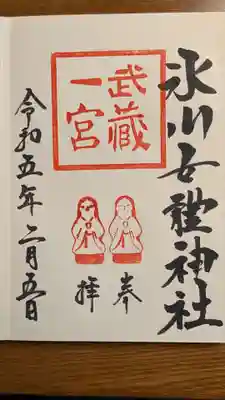 氷川女體神社
武藏
一宮
奉
拝
令和五年二月五日